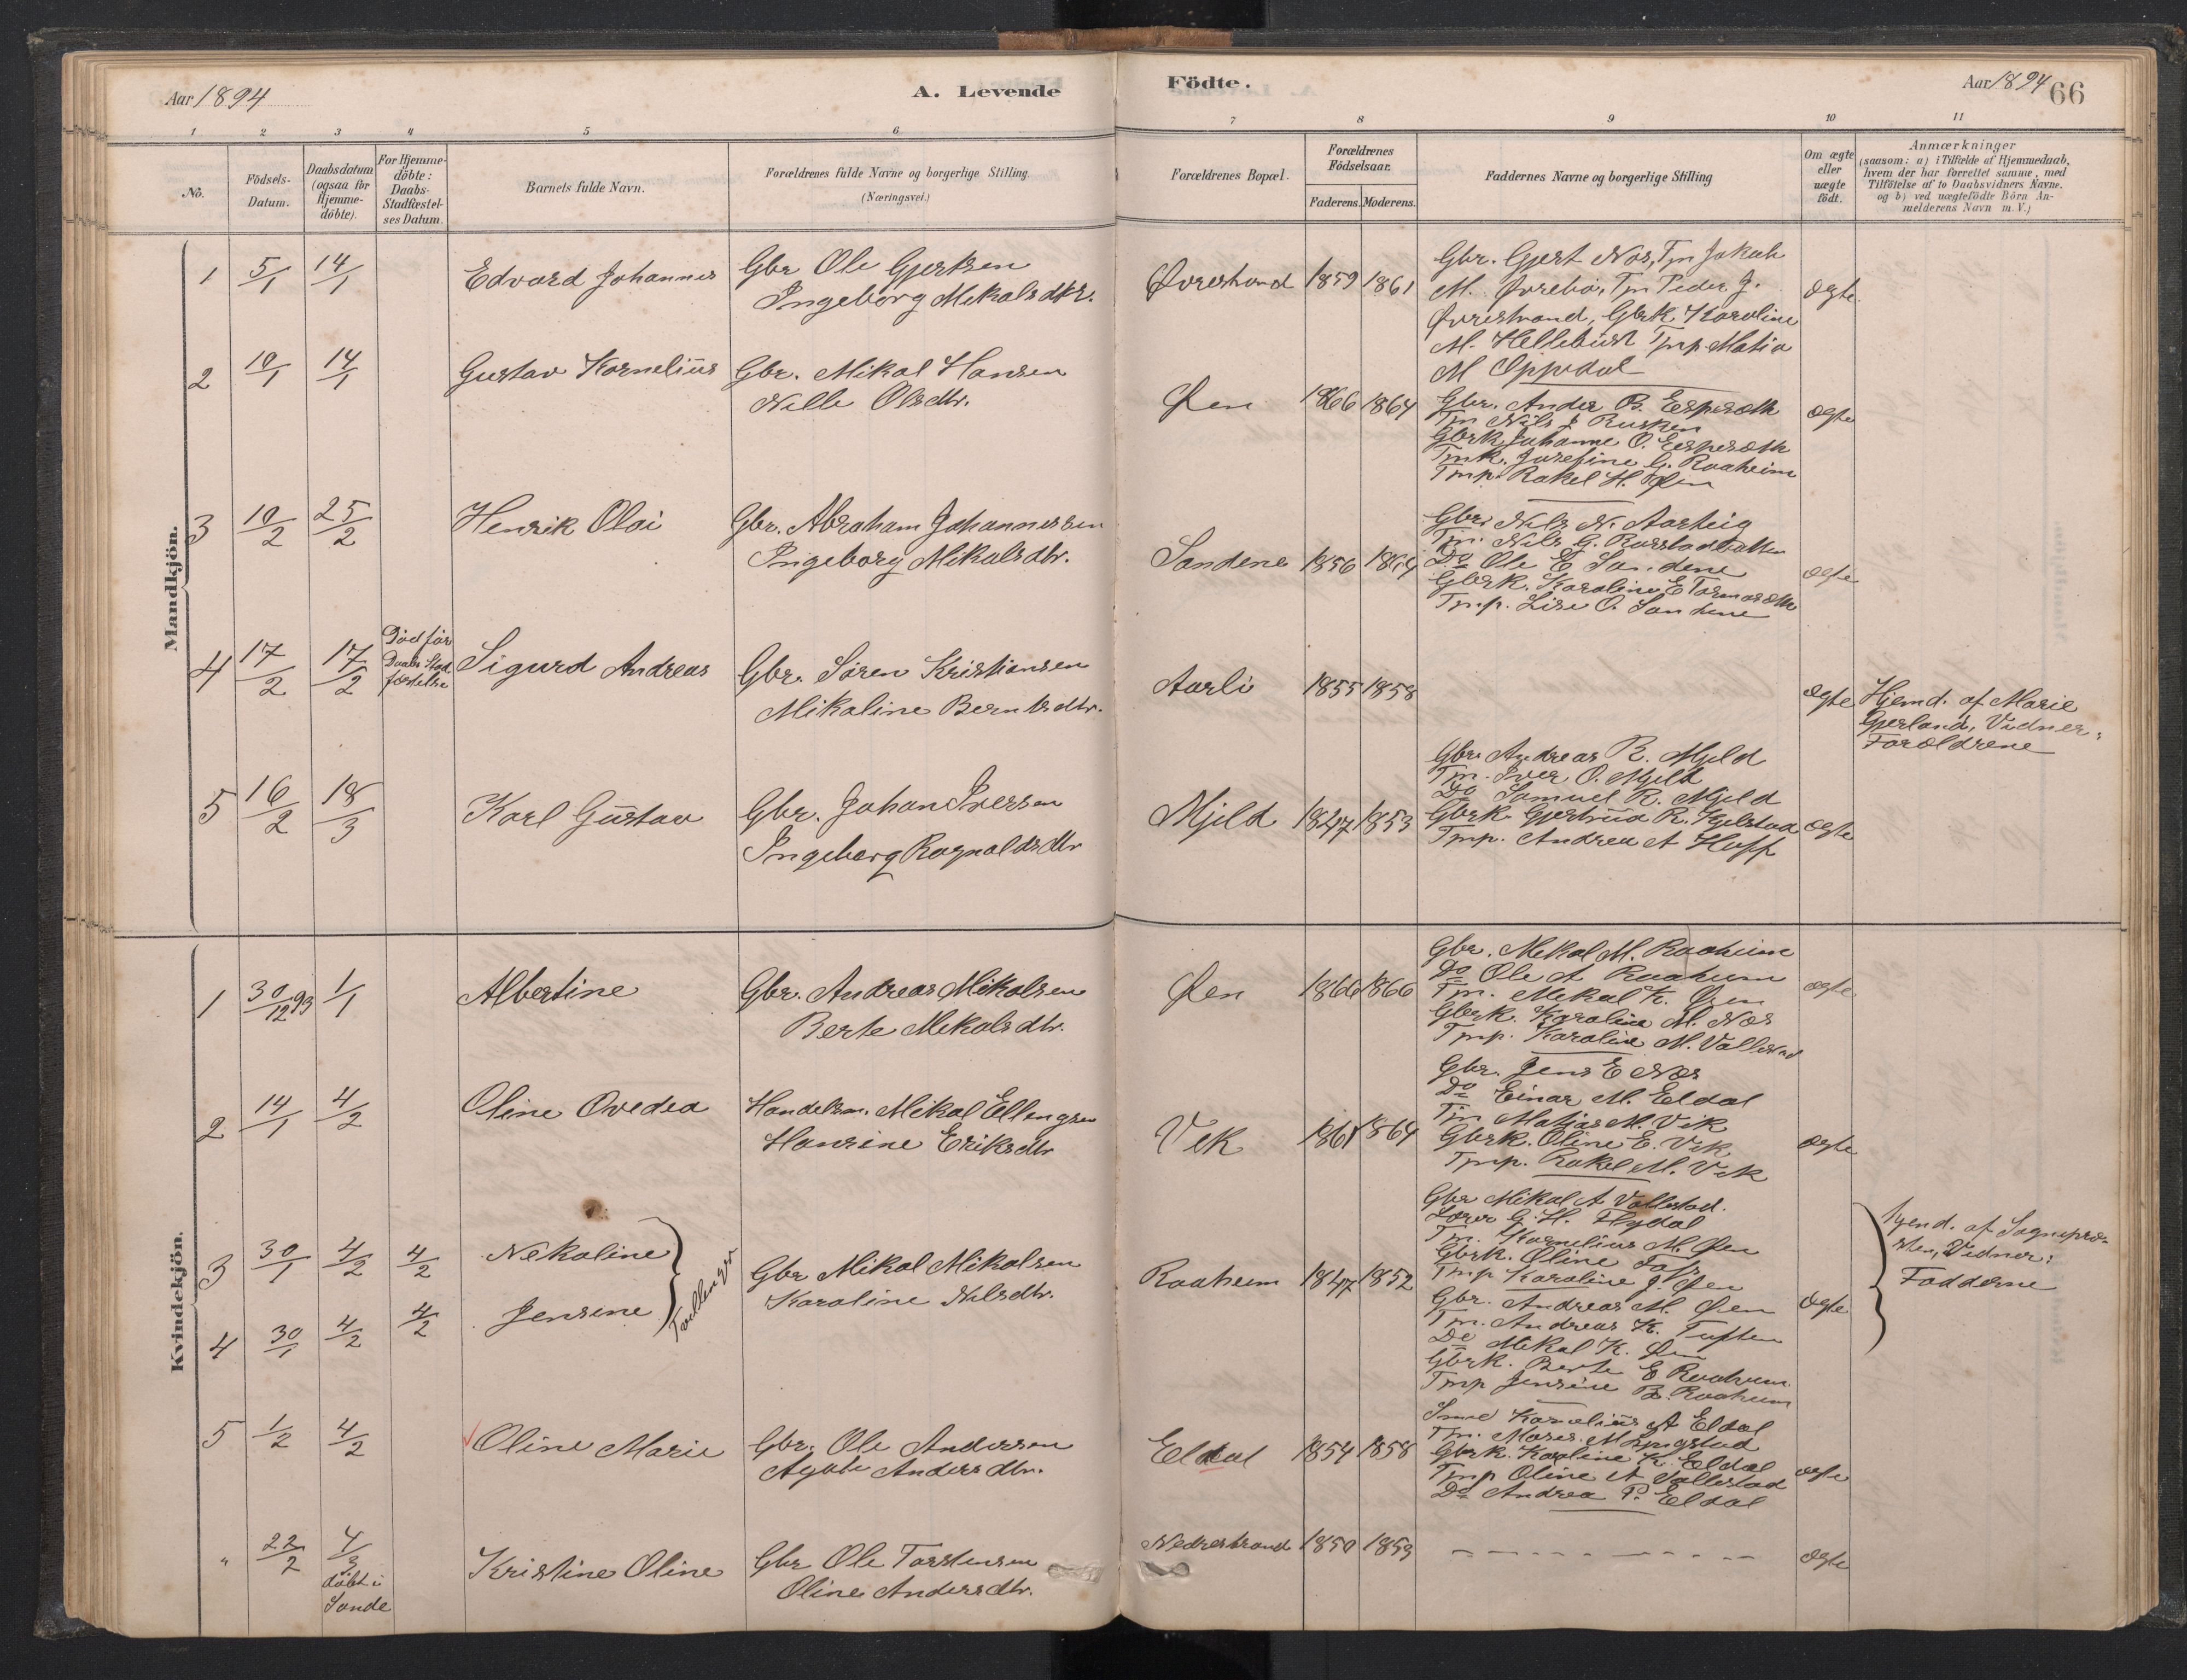 Aar 1894
A. Levende
Födte.
Aar 1894
66
1 2 3 4 5 6 7 8 9 10 11
No.
Födsels-
Datum.
Daabsdatum
(ogsaa for
Hjemme-
döbte).
For Hjemme-
döbte:
Daabs-
Stadfæstel-
ses Datum.
Barnets fulde Navn.
Forældrenes fulde Navne og borgerlige Stilling
(Næringsvei.)
Forældrenes Bopæl.
Forældrenes
Födselsaar.
Faderens. Moderens.
Faddernes Navne og borgerlige Stilling
Om ægte
eller
uægte
födt.
Anmærkninger
(saasom: a) i Tilfælde af Hjemmedaab,
hvem der har forrettet samme, med
Tilföielse af to Daabsvidners Navne.
og b) ved uægtefödte Börn An-
melderens Navn m. V.)
Mandkjön.
1 5/1 14/1 Edvard Johannes
Gbr Ole Gjertsen
Ingeborg Mikalsdtr.
Øvrestrand 1859 1861
Gbr. Gjert Nes, Tjn Jakob
M. Øvrebø, Tjn Peder J.
Øvrestrand, Gbrk Karoline
M. Hellebust Tmp Matia
M Oppedal
ægte
2 10/1 14/1 Gustav Kornelius
Gbr. Mikal Hansen
Nille Olsdtr.
Øen 1866 1864
Gbr. Ander B. Espesæth
Tjn Nils J Rusken
Gbrk Johanne O. Espesæth
Tmk. Josefine G. Raaheim
Tmp. Rakel H. Øen
ægte
3 10/2 25/2 Henrik Olai
Gbr. Abraham Johannessen
Ingeborg Mikalsdtr.
Sandene 1856 1864
Gbr. Nils N. Aasteig
Tjn. Nils G.
Do Ole E Sandene
Gbrk. Karoline E Tormosæth
Tmp. Lise O. Sandene
ægte
4 17/2 17/2
Död før
Daabs Stad
fæstelse
Sigurd Andreas
Gbr. Søren Kristiansen
Mikaline Berntsdtr.
Aarli 1855 1858
ægte
Hjemd. af Marie
Gjerland, Vidner:
Forældrene
5 16/2 18/3 Karl Gustav
Gbr. Johan Iversen
Ingeborg Ragnaldsdtr
Mjeld 1847 1853
Gbr. Andreas R. Mjeld
Tjn. Iver O. Mjeld
Do Samuel R. Mjeld
Gbrk. Gjertrud R. Kjelstad
Tmp. Andrea A Hoff
ægte
Kvindekjön.
1 30/12 93 1/1 Albertine
Gbr. Andreas Mikalsen
Berte Mikalsdtr.
Øen 1866 1866
Gbr. Mekal M. Raaheim
Do Ole A Raaheim
Tjn. Mekal K. Øen
Gbrk. Karoline M. Nes
Tmp. Karoline M. Vallestad
ægte
2 14/1 4/2 Oline Ovedea
Handelsm. Mikal Ellengsen
Hansine Eriksdtr
Vik 1861 1864
Gbr. Jens E Nes
Do Einar M. Eldal
Tjn Matias M. Vik
Gbrk. Oline E. Vik
Tmp. Rakel M. Vik
ægte
3 30/1 4/2 4/2 Nekoline
4 30/1 4/2 4/2 Jensine
Tvillinger
Gbr Mikal Mikalsen
Karoline Nilsdtr.
Raaheim 1847 1852
Gbr Mikal A Vallestad.
Lærer G. H. Flydal
Tm. Kornelius M. Øen
Gbrk. Oline Foss
Tmp Karoline J. Øen
Gbr. Andreas M. Øen
Tm. Andreas K. Tuften
Do Mekal K. Øen
Gbrk. Berte E Raaheim
Tmp Jensine B. Raaheim
ægte
hjemd. af Sognepræ-
sten, Vidner:
Fadderne
5 1/2 4/2 Oline Marie
Gbr. Ole Andersen
Agate Andersdtr.
Eldal 1854 1858
Kornelius A Eldal
Tm. Moses M Lyngstad
Gbrk. Karoline K. Eldal
Tmp Oline A Vallestad
Do Andrea P. Eldal
ægte
" 22/2 4/3
döbt i
Sande
Kristine Oline
Gbr Ole Torstensen
Oline Andersdtr.
Nedrestrand 1850 1859
- - - - - - - - - -
ægte